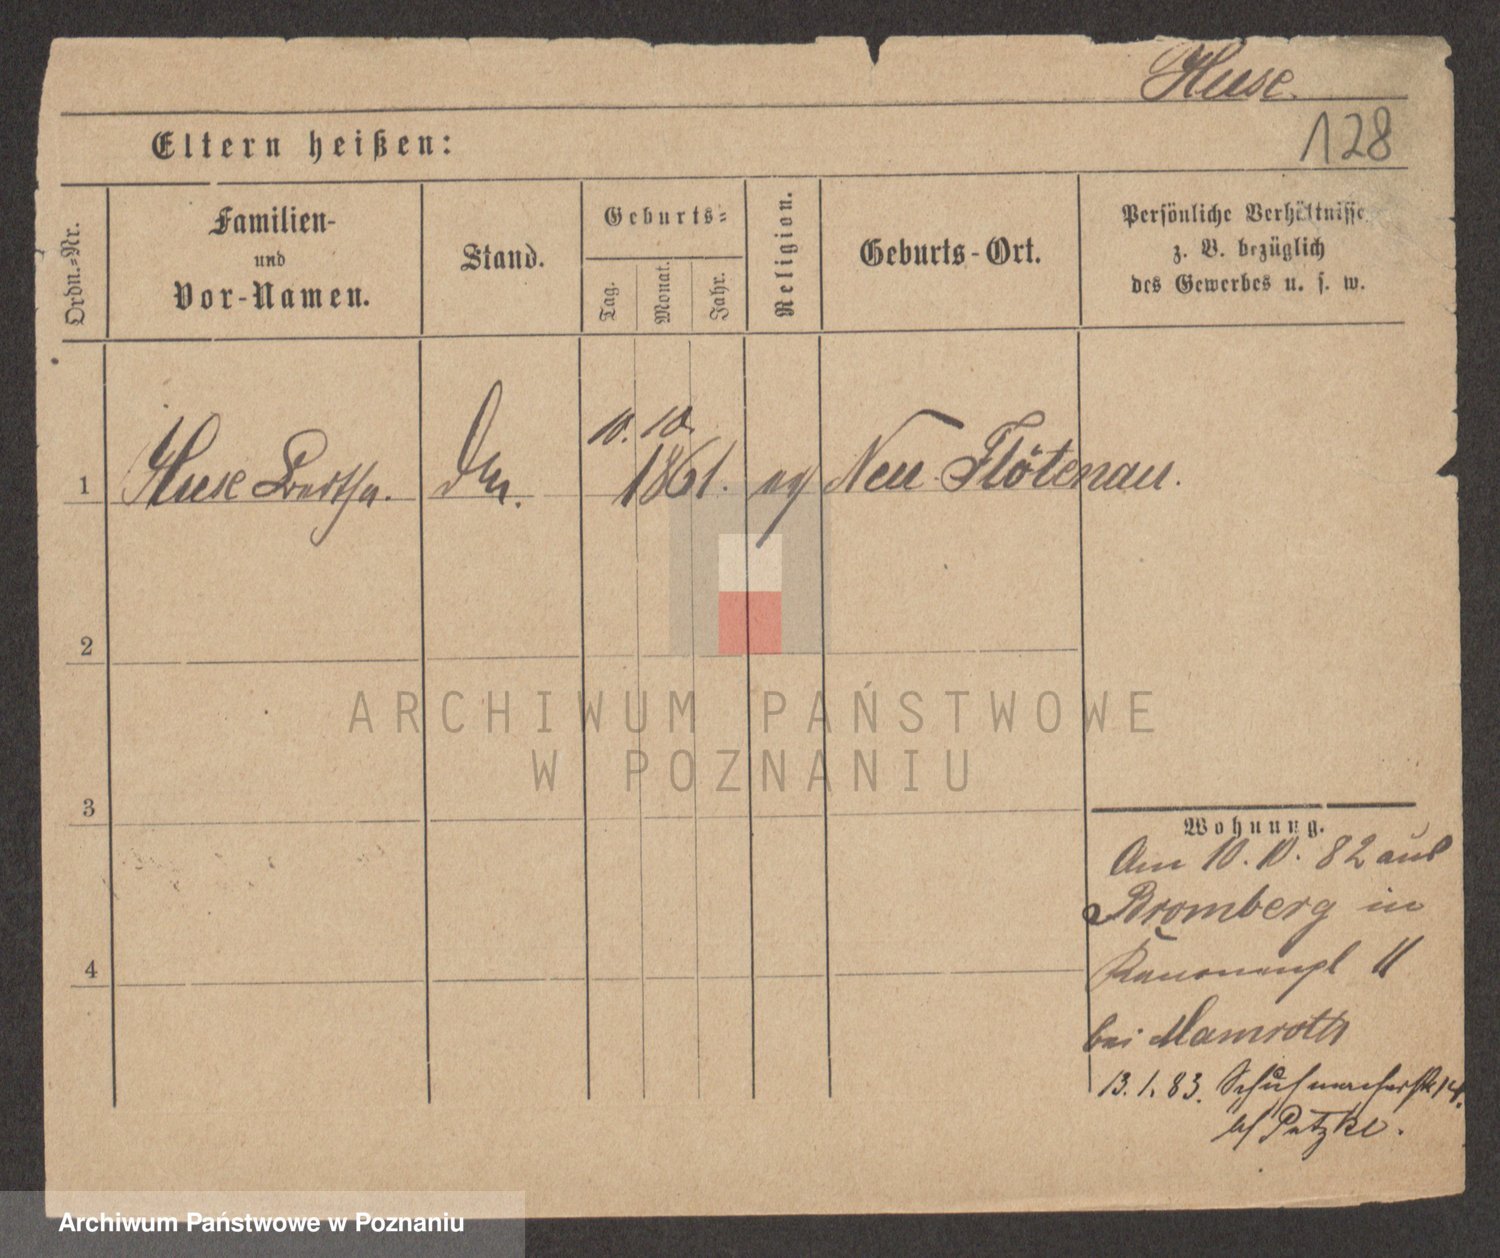 Huse.
128
Eltern heißen:
Ordn.-Nr.
Familien-
und
Vor-Namen.
Stand.
Geburts-
Tag.
Monat.
Jahr.
Religion.
Geburts-Ort.
Persönliche Verhältnisse
z. B. bezüglich
des Gewerbes u. s. w.
10. 10.
1 Huse Bertha. 1861. ev Neu Flötenau.
2
ARCHIWUM PAŃSTWOWE
W POZNANIU
3
Wohnung.
Am 10. 10. 82 aus
Bromberg in
Kanonenpl 11
4
bei Mamroth
13. 1. 83. Schuhmacherstr 14.
b/ Putzke.
Archiwum Państwowe w Poznaniu